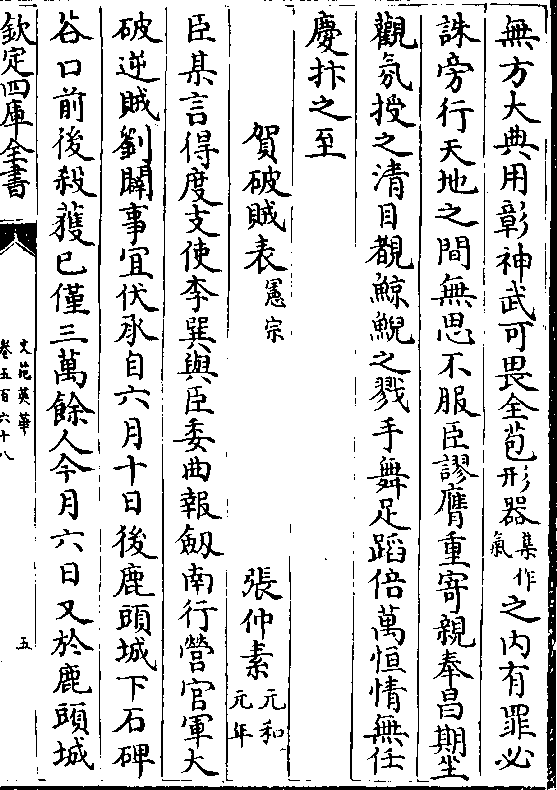 無方大典用彰神武可畏全苞形器集作氣之内有罪必
誅旁行天地之間無思不服臣謬膺重寄親奉昌期坐
觀氛祲之清目覩鯨鯢之戮手舞足蹈倍萬恒情無任
慶抃之至
賀破賊表憲宗 張仲素元和元年
臣某言得度支使李巽與臣委曲報劒南行營官軍大
破逆賊劉闢事宜伏承自六月十日後鹿頭城下石碑
谷口前後殺蒦已僅三萬餘人今月六日又於鹿頭城
欽定四庫全書
文苑英華
卷五百六十八
五